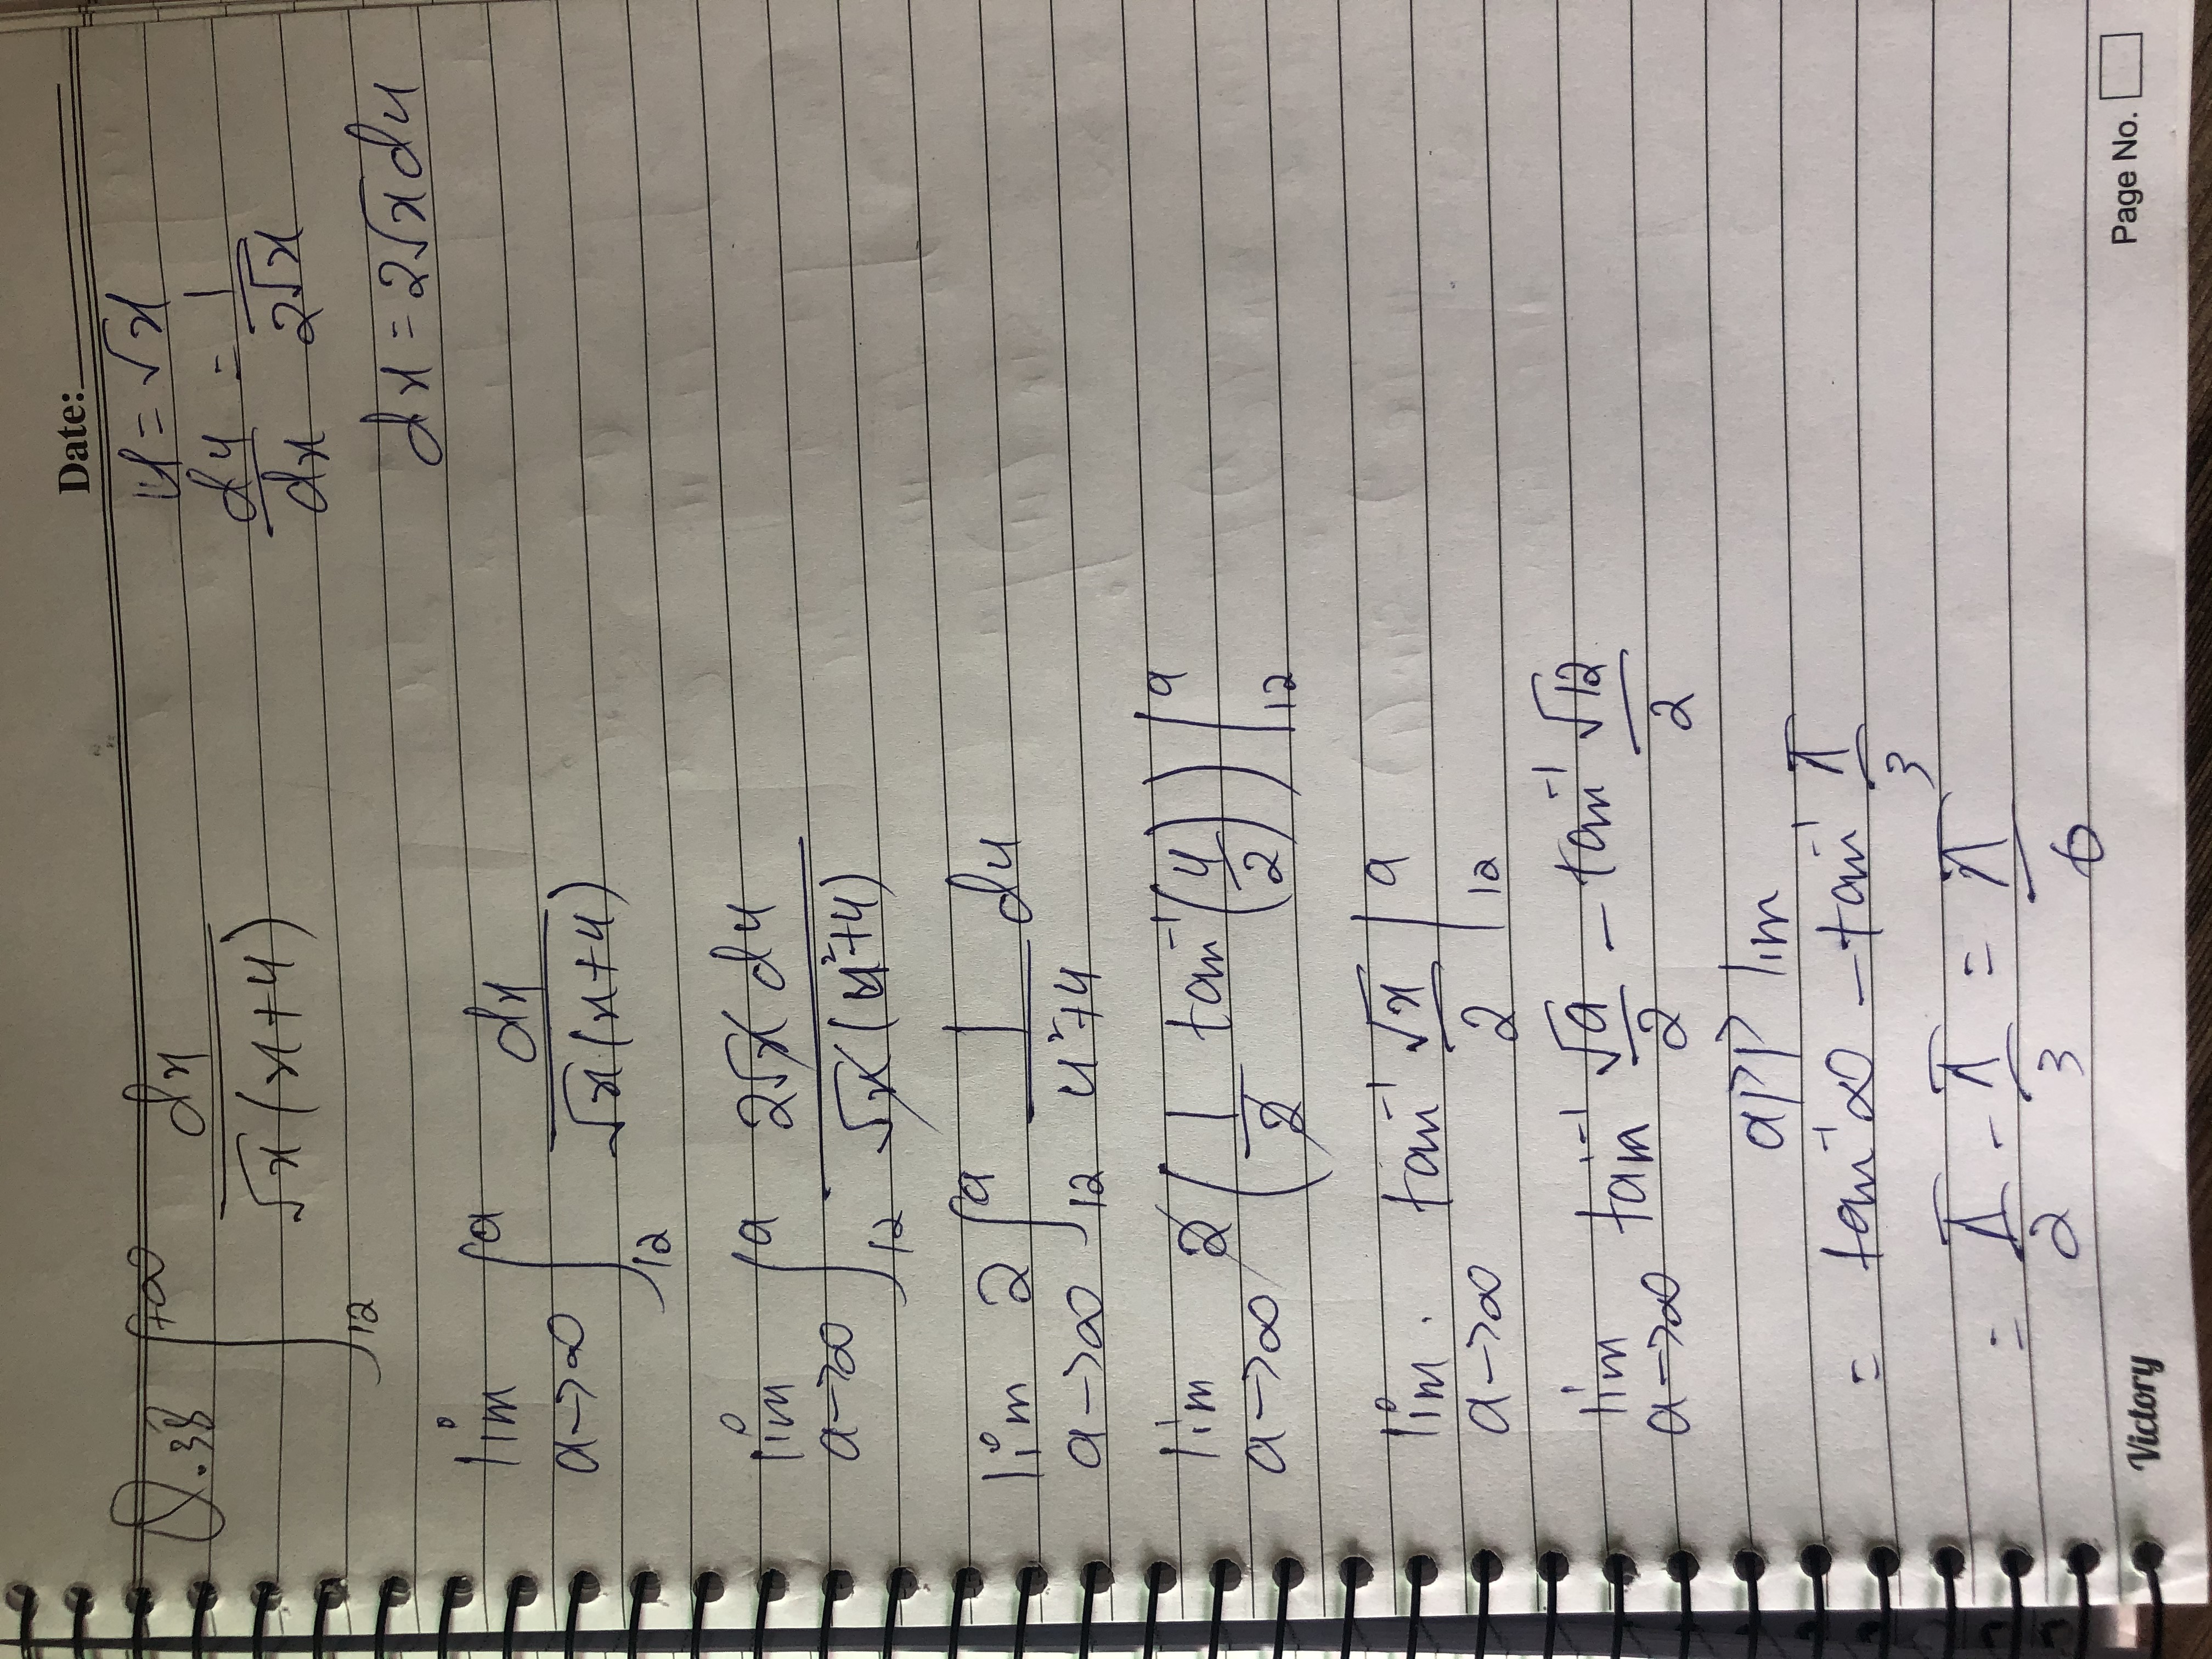 Date:
Q.38 ∫₁₂^{+∞} dx / √x (x+4)
u = √x
du/dx = 1/2√x
dx = 2√x du
lim a→∞ ∫₁₂^a dx / √x (x+4)
lim a→∞ ∫₁₂^a 2√x du / √x (u²+4)
lim a→∞ 2 ∫₁₂^a 1/u²+4 du
lim a→∞ 2 ( 1/2 tan⁻¹ (u/2) ) |₁₂^a
lim. a→∞ tan⁻¹ √x/2 |₁₂^a
lim a→∞ tan⁻¹ √a/2 - tan⁻¹ √12/2
app lim
= tan⁻¹ ∞ - tan⁻¹ π/3
= π/2 - π/3 = π/6
Victory
Page No.